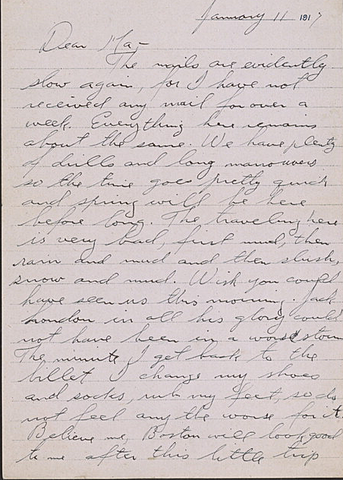 January 11 191?
Dear Ma -
The mails are evidently
slow again, for I have not
received any mail for over a
week. Everything here remains
about the same. We have plenty
of drills and long manouvers
so the time goes pretty quick
and spring will be here
before long. The traveling here
is very bad, first mud, then
rain and mud and then slush,
snow and mud. Wish you could
have seen us this morning. Jack
London in all his glory could
not have been in a worse storm
The minute I get back to the
billet I change my shoes
and socks, rub my feet, so do
not feel any the worse for it.
Believe me, Boston will look good
to me after this little trip